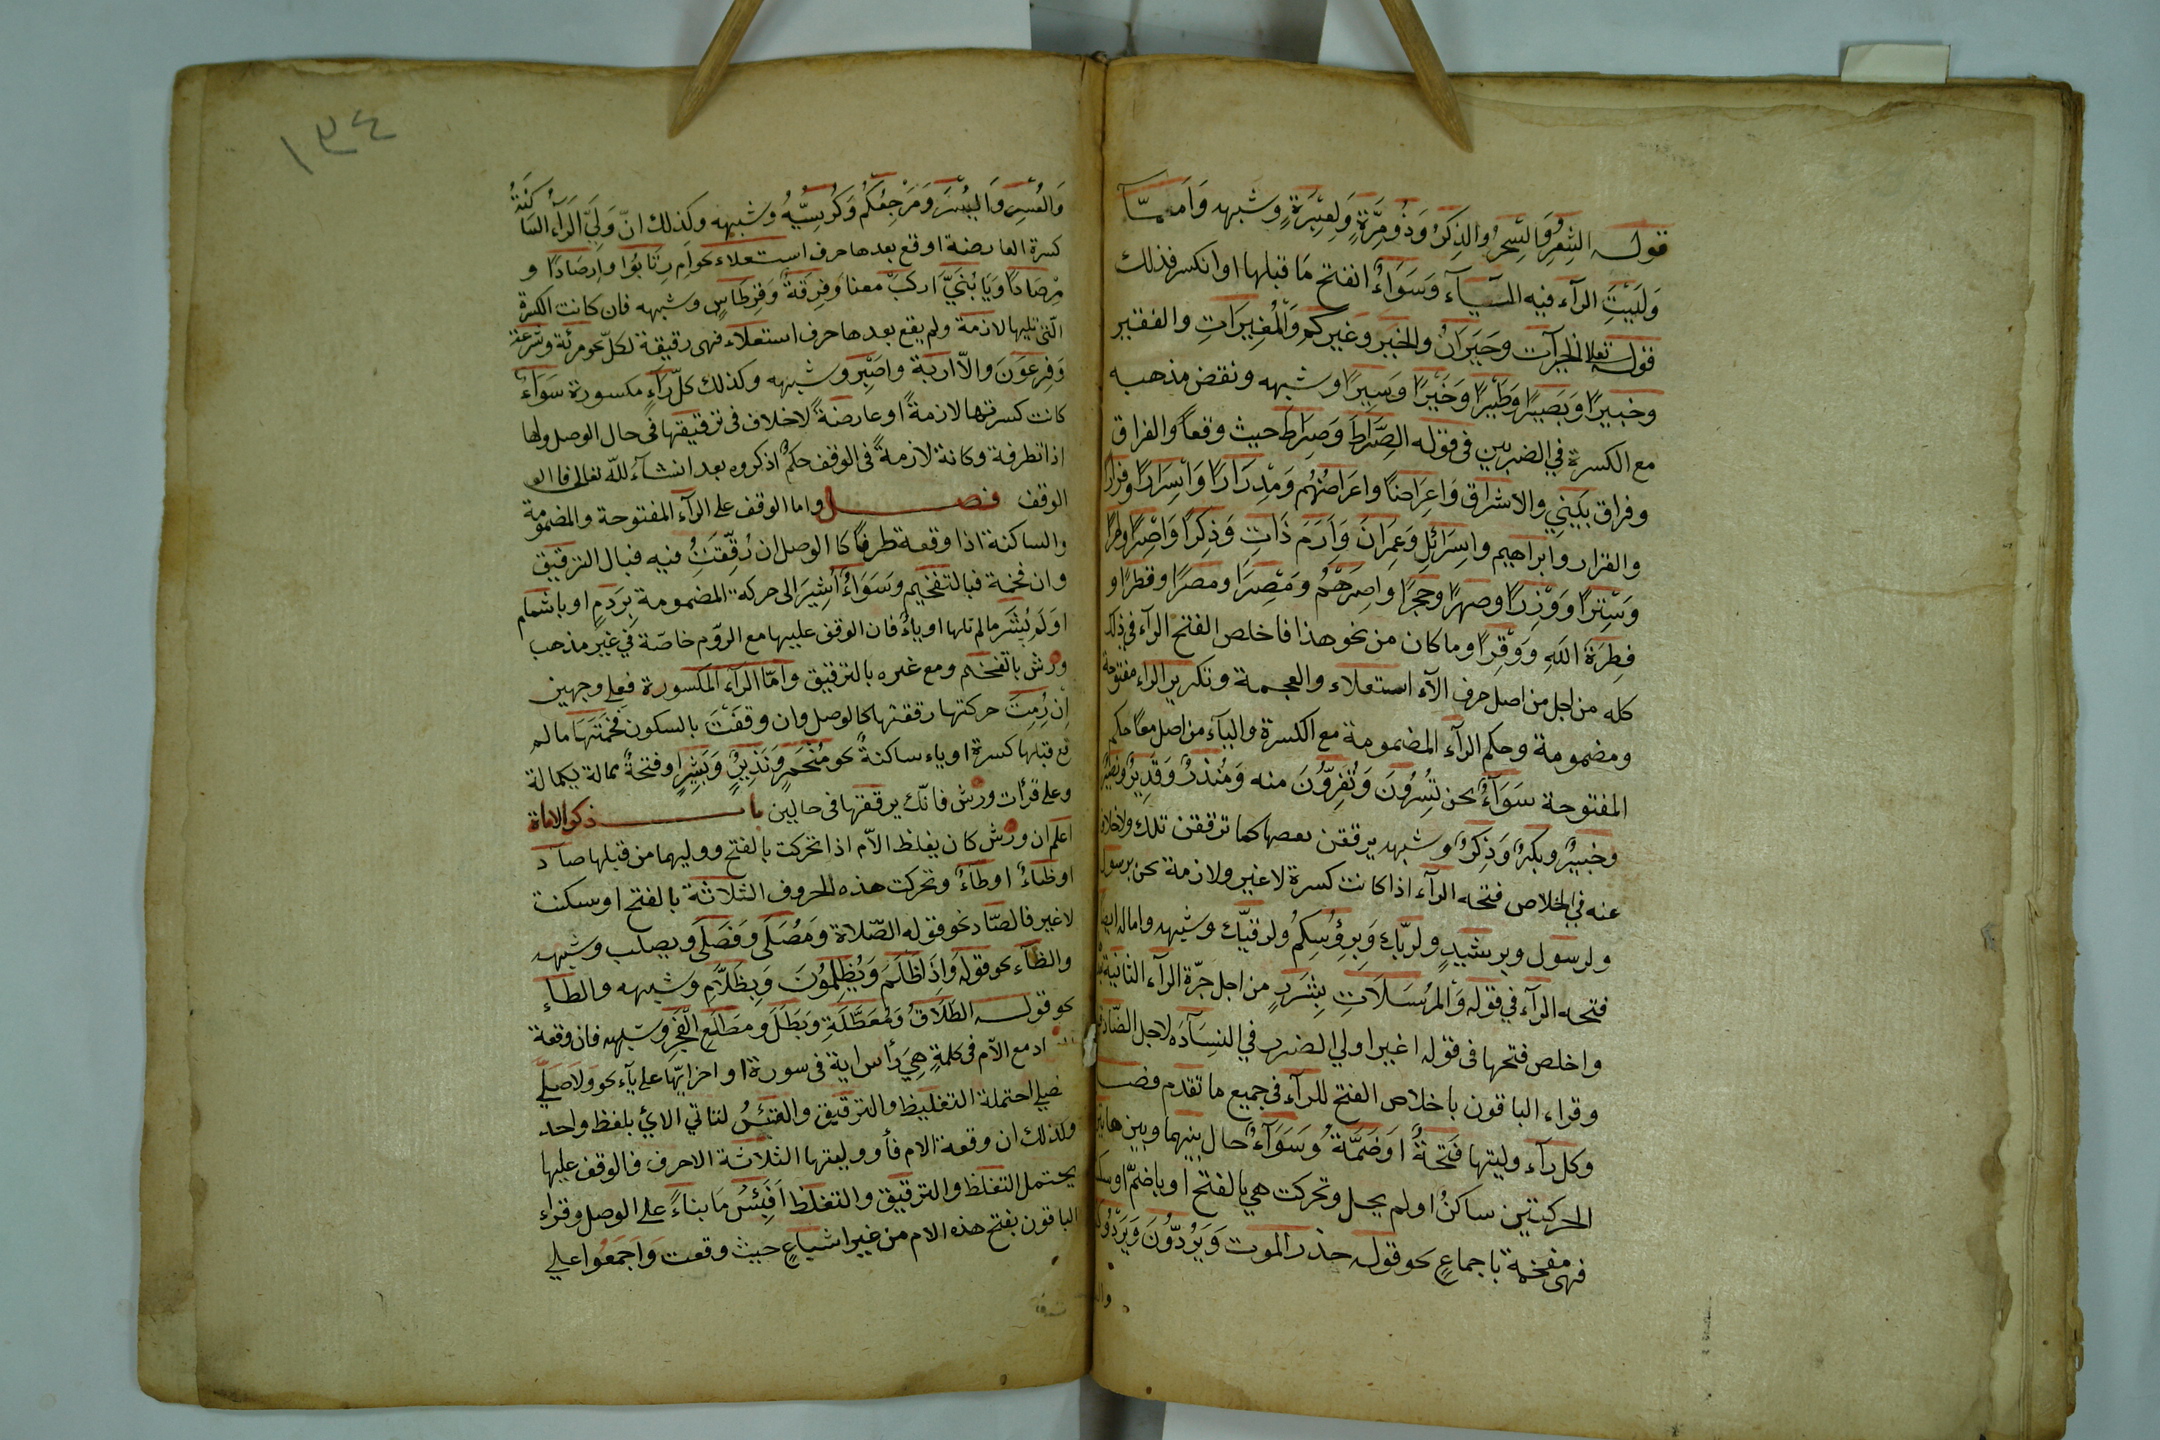 قوله الشِعْرَ وَالسِّحْرُ والذِكْرَ وَذُو مِرَّةٍ وَلِعِبْرَةٍ وشبهه وَاَمّا
وَلَيتِ الرآء فيه اليآء وَسَوَاءٌ انفتح مَا قبلها او انكسر فذلك
قوله تعلا الخيرَات وحَيرَانَ والخير وغيركم وَالمُغِيرَاتِ والفقير
وخبيرًا وَبَصيرًا وَطَيْرًا وَخَيْرًا وَسِيرًا وشبهه ونقض مذهبه
مع الكسرة في الضربين في قوله الصِّرَاطَ وَصِرَاطَ حيث وقعا والفراق
وفراق بَيني والاشراق وَاعِرَاضًا واعرَاضُهُم وَمِدرَارًا وَاسِرَارًا وفرارًا
والفرار وابراهيم واسرَائِل وَعِمرَانَ وَاِرَمَ ذَاتِ وَذِكرًا وَاصِرًا وامرًا
وَسِترًا وَوِزرًا وصهرًا وحِجرًا واصرَهُم وَمِصرَا ومصرًا وقطرًا و
فِطرَةَ اللهِ وَوِقرًا وما كان من نحو هذا فاخلص الفتح الرآء في ذلك
كله من اجل من اصل حرف الآء استعلاء والعجمة وتكرير الراء مفتوحة
ومضمومة وحكم الرآء المضمومة مع الكسرة واليآء من اصل معًا حكم
المفتوحة سَوَآءٌ نحن يُسِرُّونَ وَتَفِرُّونَ منه وَمُنذرٌ وَقَدِيرٌ وبصيرٌ
وخبيرٌ وبكرٌ وَذِكرٌ وشبهه يرققن بعضها كما ترققن تلك ولاخلاف
عنه في الخلاص فتحه الرآء اذا كانت كسرة لاغير ولازمة نحن برسول
ولرسول وبرشيدٍ ولربّك وَبِرؤُسِكمُ ولرقيّك وشبهه وامال ايضا
فتحه الرآء في قوله وَالمرُسَلَاتِ بِشَرَرٍ من اجل جرّة الرآء الثانية
واخلص فتحها في قوله اغير اولي الضرر في النسآءَ لاجل الضّاد
وقراء الباقون باخلاص الفتح للرآء في جميع ما تقدم فصل
وكل رآء وليتها فَتحةٌ اوَضَمَّةٌ وُسَوَآءٌ حال بينهما وبين هاتين
الحركتين ساكنٌ او لم يحل وتحركت هي بالفتح او باضمّ او سكنت
فهى مفخمة باجماعٍ نحو قوله حذر الموت وَيَرُدُّونَ وَيَردُّوكم
وال
١٣٤
وَالعُسِر وَاليُسرَ وَمَرْجِعُكُم وَكُرسِيُّهُ وشبهه وكذلك انّ وَلِيَ الرَآءُ السَاكِنةُ
كسرة العارضة او قع بعدها حرف استعلاء نحو ام رتَابُوا وارصَادًا و
مِرصَادًا وَيَا بُنَيَّ اركَب معنا وَفِرقَةٌ وَقرِطَاسٍ وشبهه فان كانت الكسرة
الّتي تليها لازمة ولم يقع بعدها حرف استعلاء فهى رقيقة لكلّ نحو مرئة وشرعة
وَفِرعَوَنَ والّا اربَة واصَبِر وشبهه وكذلك كلّ رآءٍ مكسورة سَوَاءٌ
كانت كسرتها لازمةً او عارضَةً لاخلاف في ترقيقها في حال الوصل ولها
اذا تطرفة وكانة لازمةً في الوقف حكمٌ اذكروه بعد انشآء للّه تعالى فا اﻟﻮ
الوقف فصل واما الوقف على الرآء المفتوحة والمضمومة
والساكنة اذا وقعة طرفًا كا الوصل ان رُقِّقتَتُ فيه فبال الترقيق
وان فخمة فبالتفخيم وَسَوَاءٌ اُشِيرَ الى حركه المضمومة بِرَدمٍ او باشمام
اولَم يُشَر مالم تلها او ياءٌ فان الوقف عليها مع الروّم خاصّة في غير مذهب
ورش باتفخيم ومع غيره بالترقيق وامّا الرآء المكسورة فعلي وجهين
اِن رُمتَ حركتها رققتها كالوصل وان وقفتَ بالسكون فخمتهَا مالم
قع قبلها كسرة او ياء ساكنةٌ نحو مُنهَمرٍ وَنَذيرٌ وَبَشِرٍ او فتحةٌ ممالة يكمالة
وعلى قرأت ورش فانّك يرققها في حالين باب ذكر الامات
اعلم ان ورش كان يغلظ الاّم اذا تحركت بالفتح ووليهما من قبلها صآد
اوظَاءٌ اوطَآءٌ وتحركت هذه الحروف الثلاثة بالفتح او سكنت
لاغير فالصّاد نحو قوله الصّلاة وَمُصَلَّى وَفَصَلَى ويصلب وشبهه
والظآء نحو قوله وَاِذَا ظَلَمَ وَيُظلِمُونَ وَبِظَلَّامٍ وشبهه والطاءِ
نحو قوله الطَلَاقُ وَمُعَطَّلَةٍ وَبَطَلَ ومَطلَعِ الفَجرِ وشبهه فان وقعة
اد مع الاّم في كلمةٍ هِيَ رأس اية في سورة او اخر ايّها على يآء نحو ولا صلّي
فصلي احتملة التغليظ والترقيق والفَتَيْسُ لتاتي الايُ بلفظ واحد
وكذلك ان وقعة الام فأو وليعتها الثلاثة الاحرف فالوقف عليها
يحتمل التغلظ والترقيق والتغلظ اَقيَسُ مَا بناءً على الوصل وقراء
الباقون بفتح هذه الام من غير اشباعٍ حيث وقعت وَاجمَعُوا علي